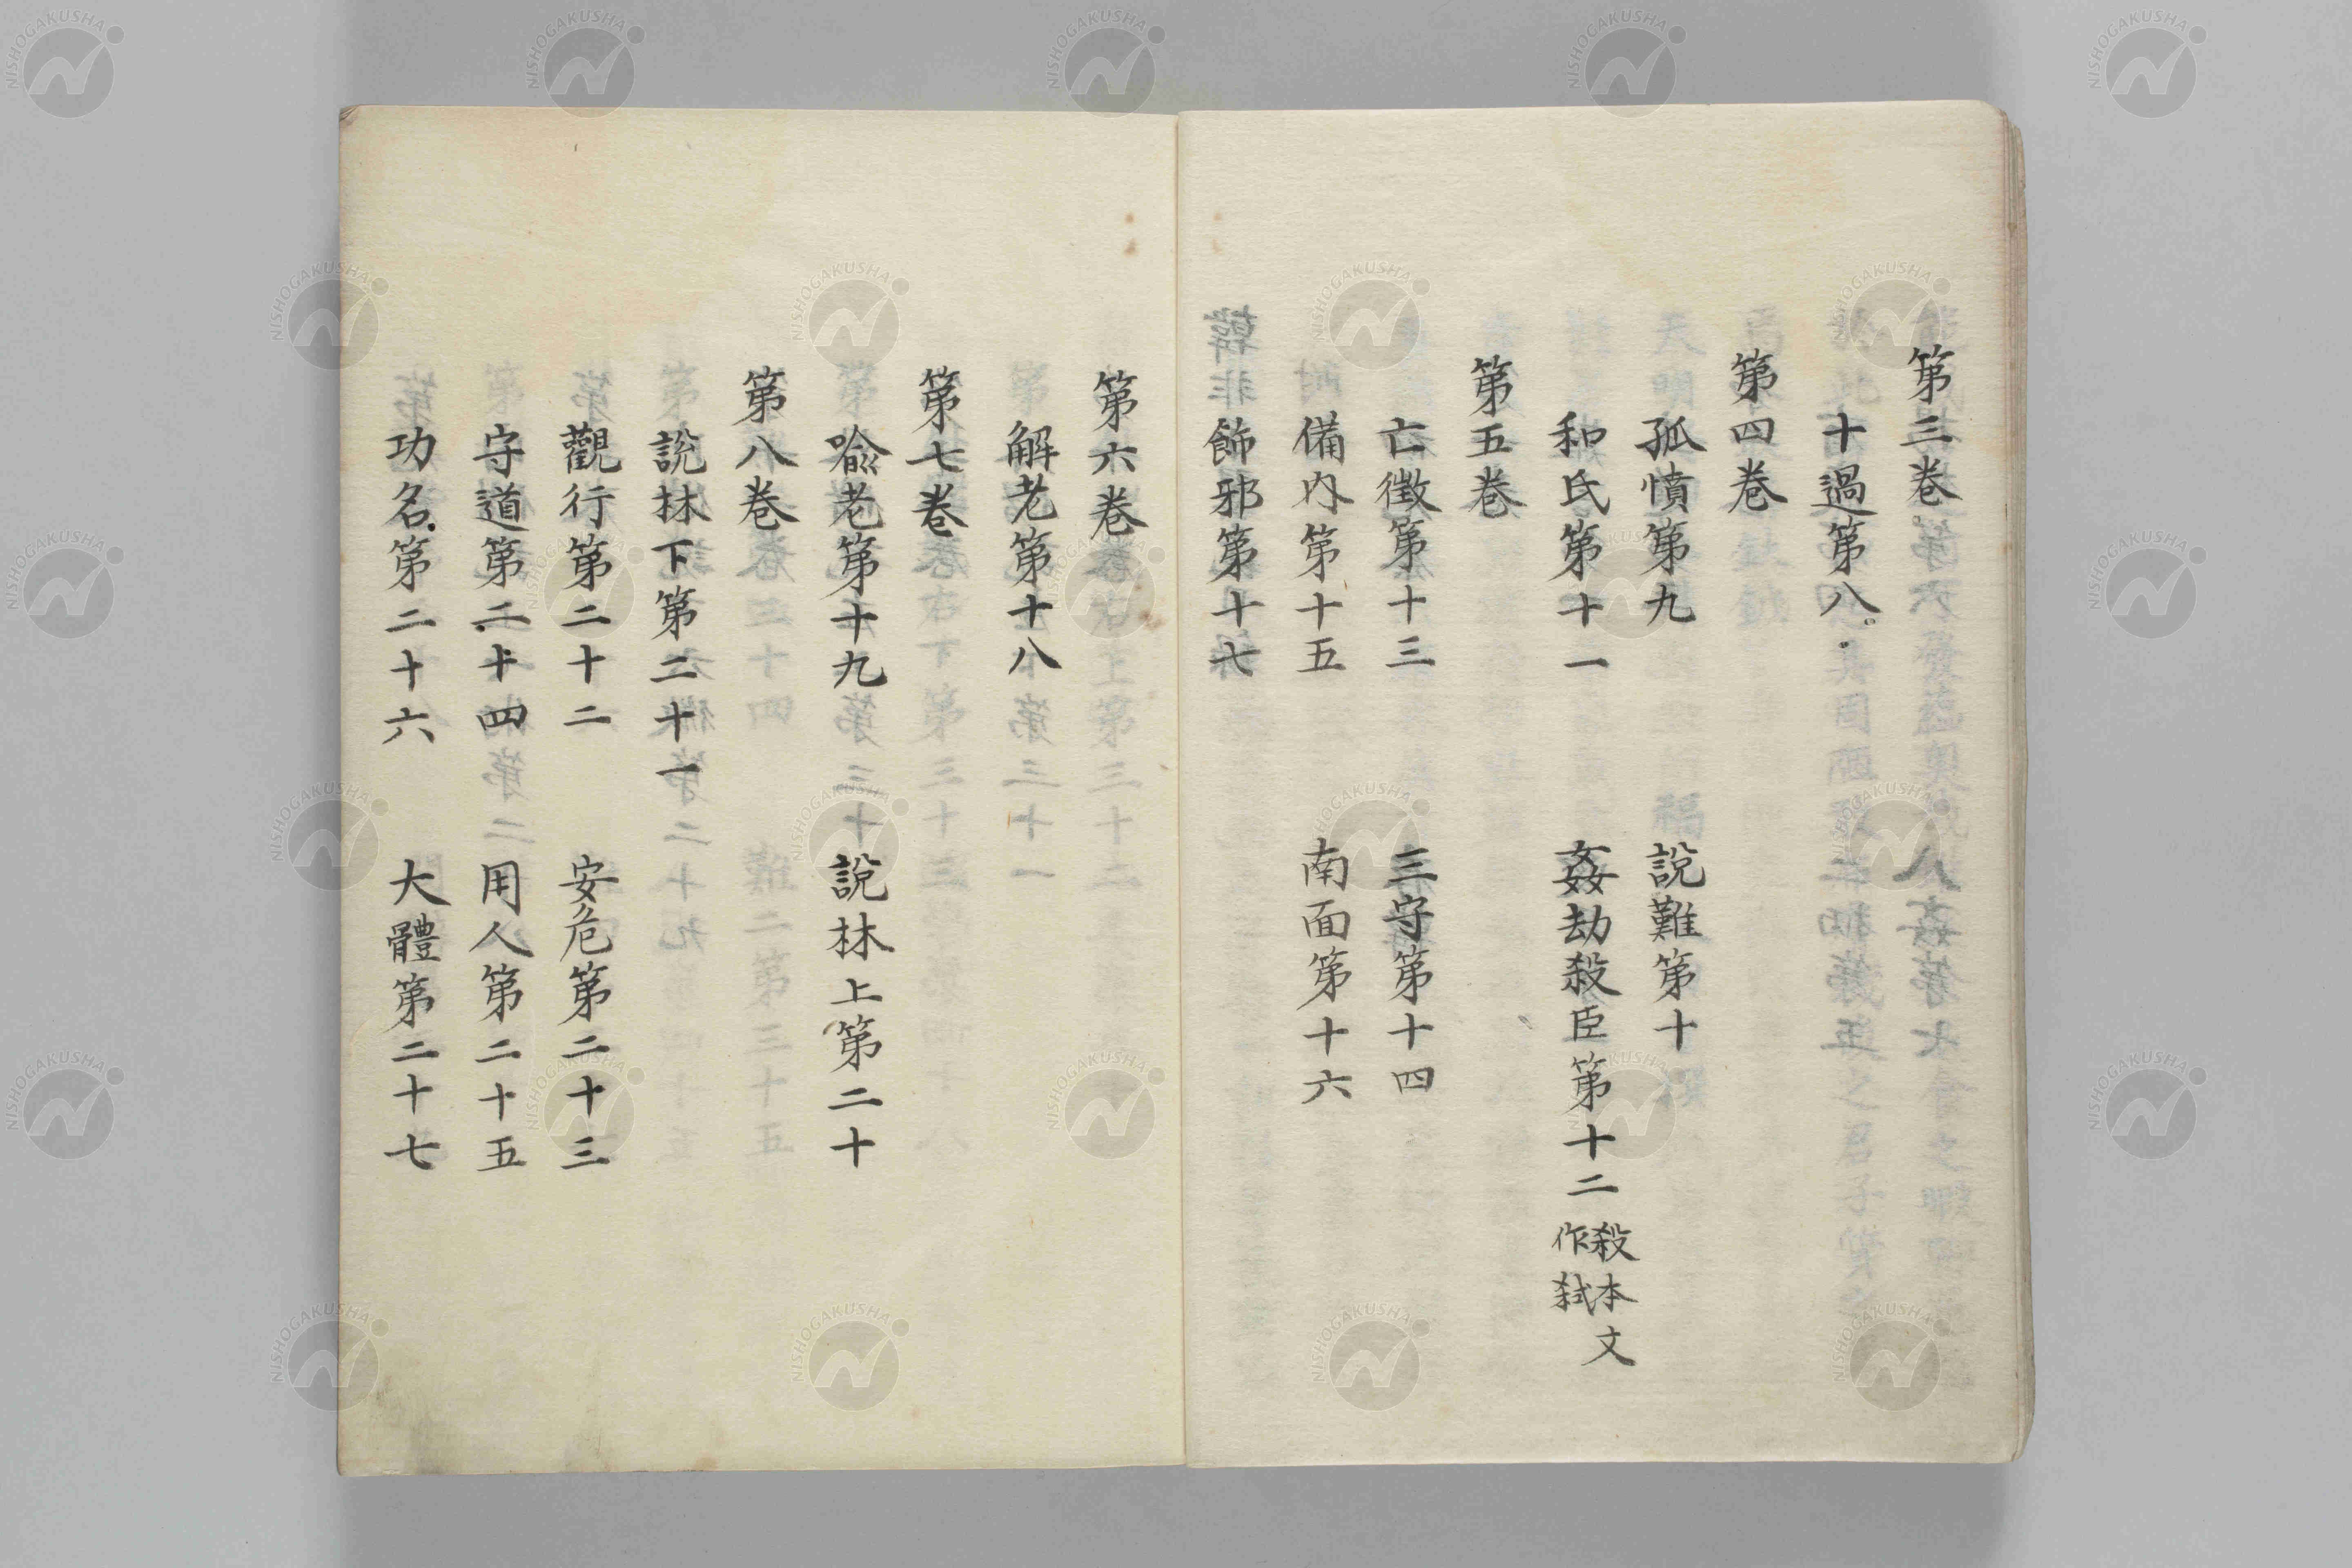 第三卷
十過第八
第四卷
孤憤第九 說難第十
和氏第十一 姦劫殺臣第十二 殺本文作弑
第五卷
亡徴第十三 三守第十四
備内第十五 南面第十六
飾邪第十七
第六卷
解老第十八
第七卷
喩老第十九 說林上第二十
第八卷
說林下第二十一
觀行第二十二 安危第二十三
守道第二十四 用人第二十五
功名第二十六 大體第二十七
NISHOGAKUSHA